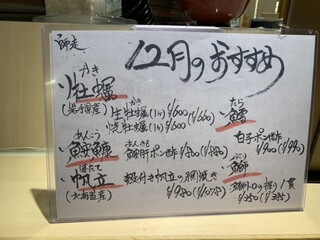 師走
12月のおすすめ
かき
牡蠣
(岩手県産)
かき
生牡蠣(1ヶ)¥600(¥660)
焼牡蠣(1ヶ)¥600(¥660)
あんこう
鮟鱇
あんきも
鮟肝ポン酢 ¥880
ほたて
帆立
(北海道産)
殻付き帆立の磯焼き
¥980(¥1078)
たら
鱈
白子ポン酢
¥900(¥990)
ぶり
鰤
鰤トロの握り1貫
¥350(¥385)